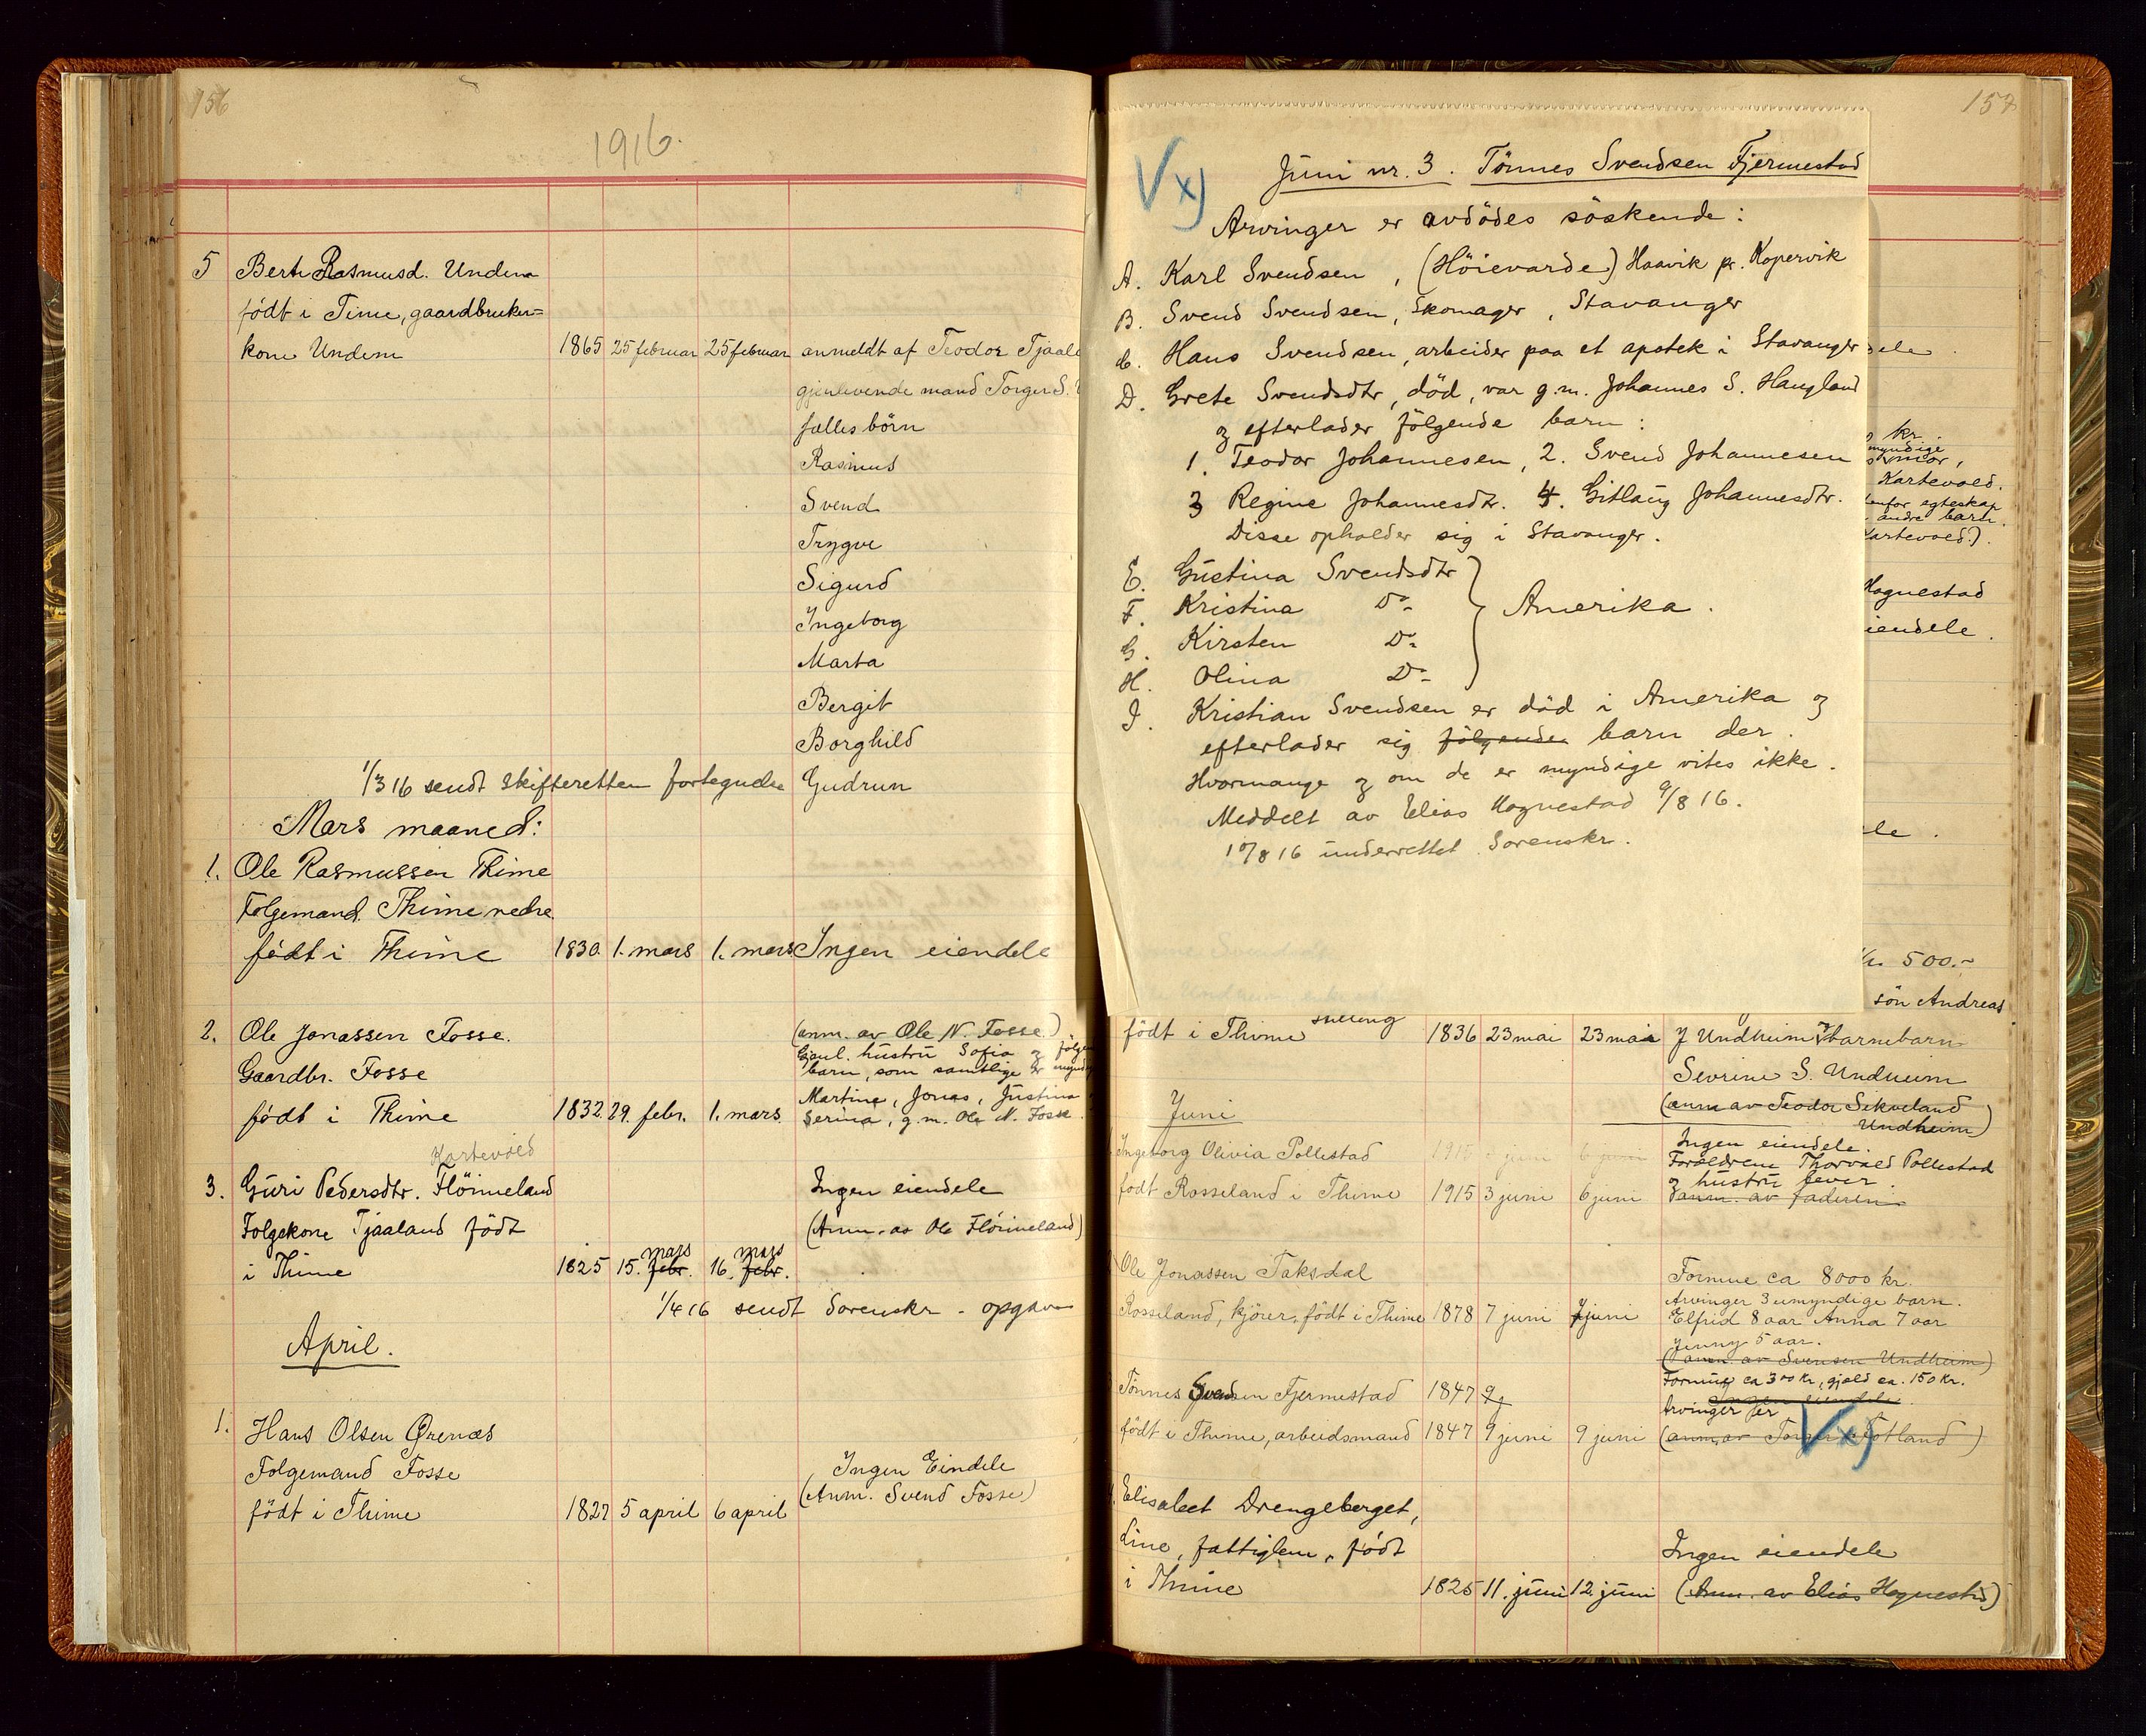 156
1916.
5 Berte Rasmusd. Undem
født i Time, gaardbruker=
kone Undem 1865 25 februar 25 februar anmeldt af Teodor Tjaal
gjenlevende mand Torger S.
fælles börn
Rasmus
Svend
Trygve
Sigurd
Ingeborg
Marta
Bergit
Borghild
1/3 16 sendt Skifteretten fortegnelse Gudrun
Mars maaned:
1. Ole Rasmussen Thime
Folgemand. Thime nedre
født i Thime 1830. 1. mars 1. mars Ingen eiendele
2. Ole Jonassen Fosse. (anm. av Ole N. Fosse.)
Gjenl. hustru Sofia og følgen
Gaardbr. Fosse barn, som samtlige er myndig
Martine, Jonas, Justina
født i Thime 1832. 29. febr. 1. mars. Serina, g.m. Ole N. Fosse.
Kartevold
3. Guri Pedersdtr. Flöimeland Ingen eiendele
Folgekone Tjaaland født (Anm. av Ole Flöimeland)
mars mars
i Thime 1825 15. febr. 16. febr.
1/4 16 sendt Sorenskr. opgave
April.
1. Hans Olsen Ørenæs
Folgemand Fosse Ingen Eindele
(Anm. Svend Fosse)
født i Thime 1827 5 april 6 april
157
V x)
Juni nr. 3. Tönnes Svendsen Fjermestad
Arvinger er avdödes söskende:
A. Karl Svendsen, (Höievarde) Haavik pr. Kopervik
B. Svend Svendsen, Skomager, Stavanger
C. Hans Svendsen, arbeider paa et apotek i Stavanger
D. Grete Svendsdtr, död, var g.m. Johannes S. Haugland
og efterlader fölgende barn:
1. Teodor Johannesen, 2. Svend Johannesen
3 Regine Johannesdtr. 4. Gitlaug Johannesdtr.
Disse opholder sig i Stavanger.
E. Gustina Svendsdtr
F. Kristina Do Amerika.
G. Kirsten Do
H. Olina Do
I. Kristian Svendsen er död i Amerika og
efterlader sig fölgende barn der.
Hvormange og om de er myndige vites ikke.
Meddelt av Elias Hognestad 9/8 16.
10/8 16 underrettet Sorenskr.
dele.
kr.
myndige
mor,
Kartevold.
enfor egteskap
andre barn.
Kartevold).
Hognestad
iendele.
ele.
kr 500.-
sön Andreas
stilling
født i Thime 1836 23 mai 23 mai J Undheim og barnebarn
Sevrine S. Undheim
Juni (anm av Teodor Sikveland
Undheim)
Ingen eiendele.
Ingeborg Olivia Pollestad 1915 juni 6 juni Forældrene Thorvald Pollestad
og hustru lever.
født Rosseland i Thime 1915 3 juni 6 juni anm. av faderen
Ole Jonassen Taksdal Formue ca 8000 kr.
Arvinger 3 umyndige barn.
Rosseland, kjörer, født i Thime 1878 7 juni 7 juni Elfrid 8 aar Anna 7 aar
Jenny 5 aar.
(anm. av Svensen Undheim)
Tönnes Svendsen Fjermestad 1847 9 Formue ca 300 kr, gjæld ca. 150 kr.
Ingen eiendele
Arvinger er V x)
født i Thime, arbeidsmand 1847 9 juni 9 juni (anm. av Torger Fotland)
Elisabet Drengeberget,
Line, fattiglem, född Ingen eiendele
i Thime 1825 11. juni 12. juni (Anm. av Elias Hognestad)